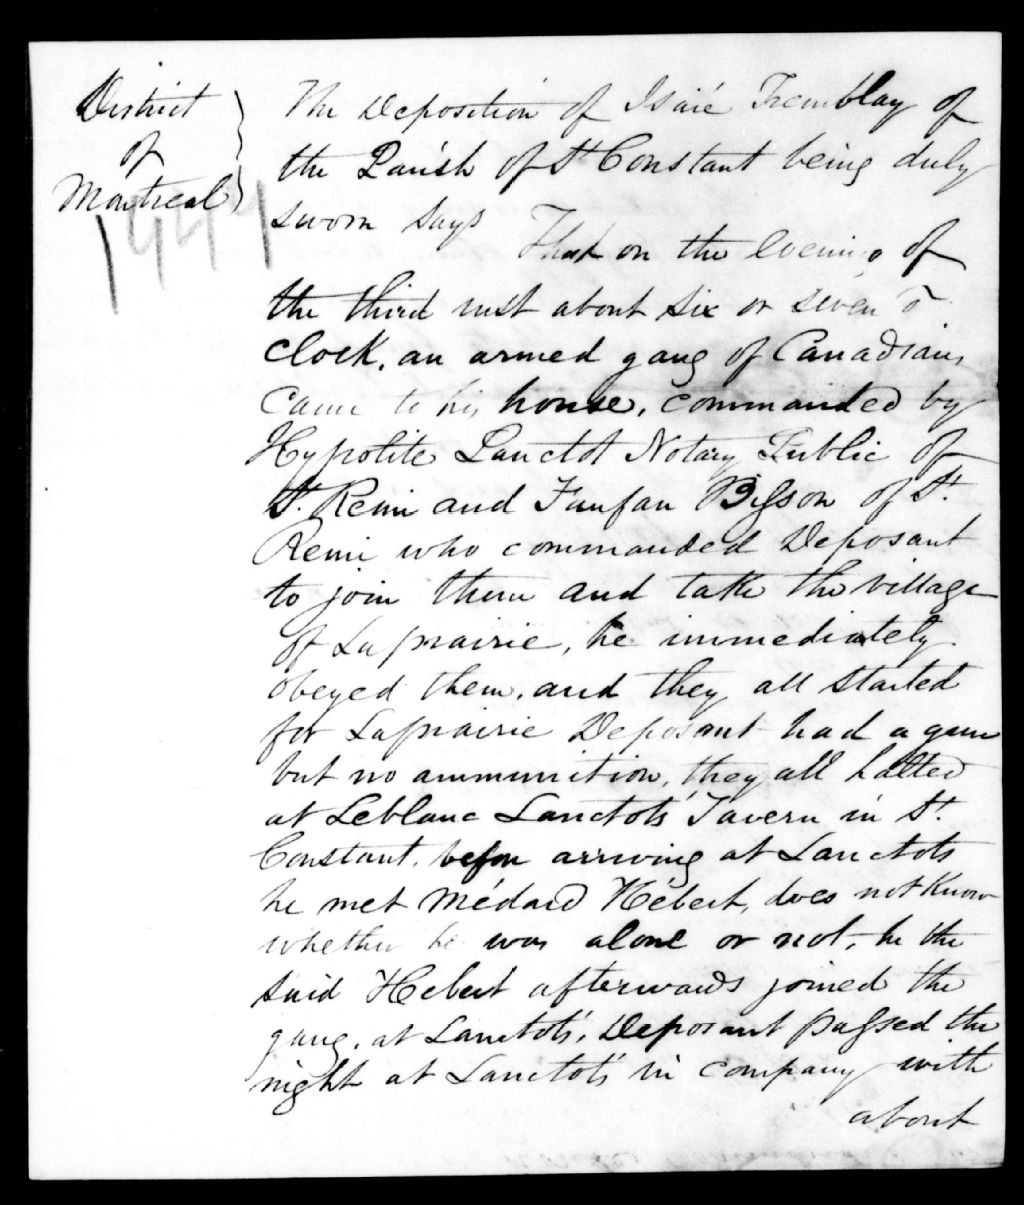 District
of
Montreal
1949
The Deposition of Isaié Tremblay of
the Parish of St Constant being duly
sworn says That on the evening of
the third inst about six or seven o
clock, an armed gang of Canadians
came to his house, commanded by
Hypolite Lanctot Notary Public of
St. Remi and Fanfan Bisson of St.
Remi who commanded Deposant
to join them and take the village
of Laprairie, he immediately
obeyed them, and they all started
for Laprairie Deposant had a gun
but no ammunition, they all halted
at Leblanc Lanctots' Tavern in St.
Constant, before arriving at Lanctots
he met Médard Hébert, does not know
whether he was alone or not, he the
said Hebert afterwards joined the
gang, at Lanctots', Deposant passed the
night at Lanctots' in company with
about